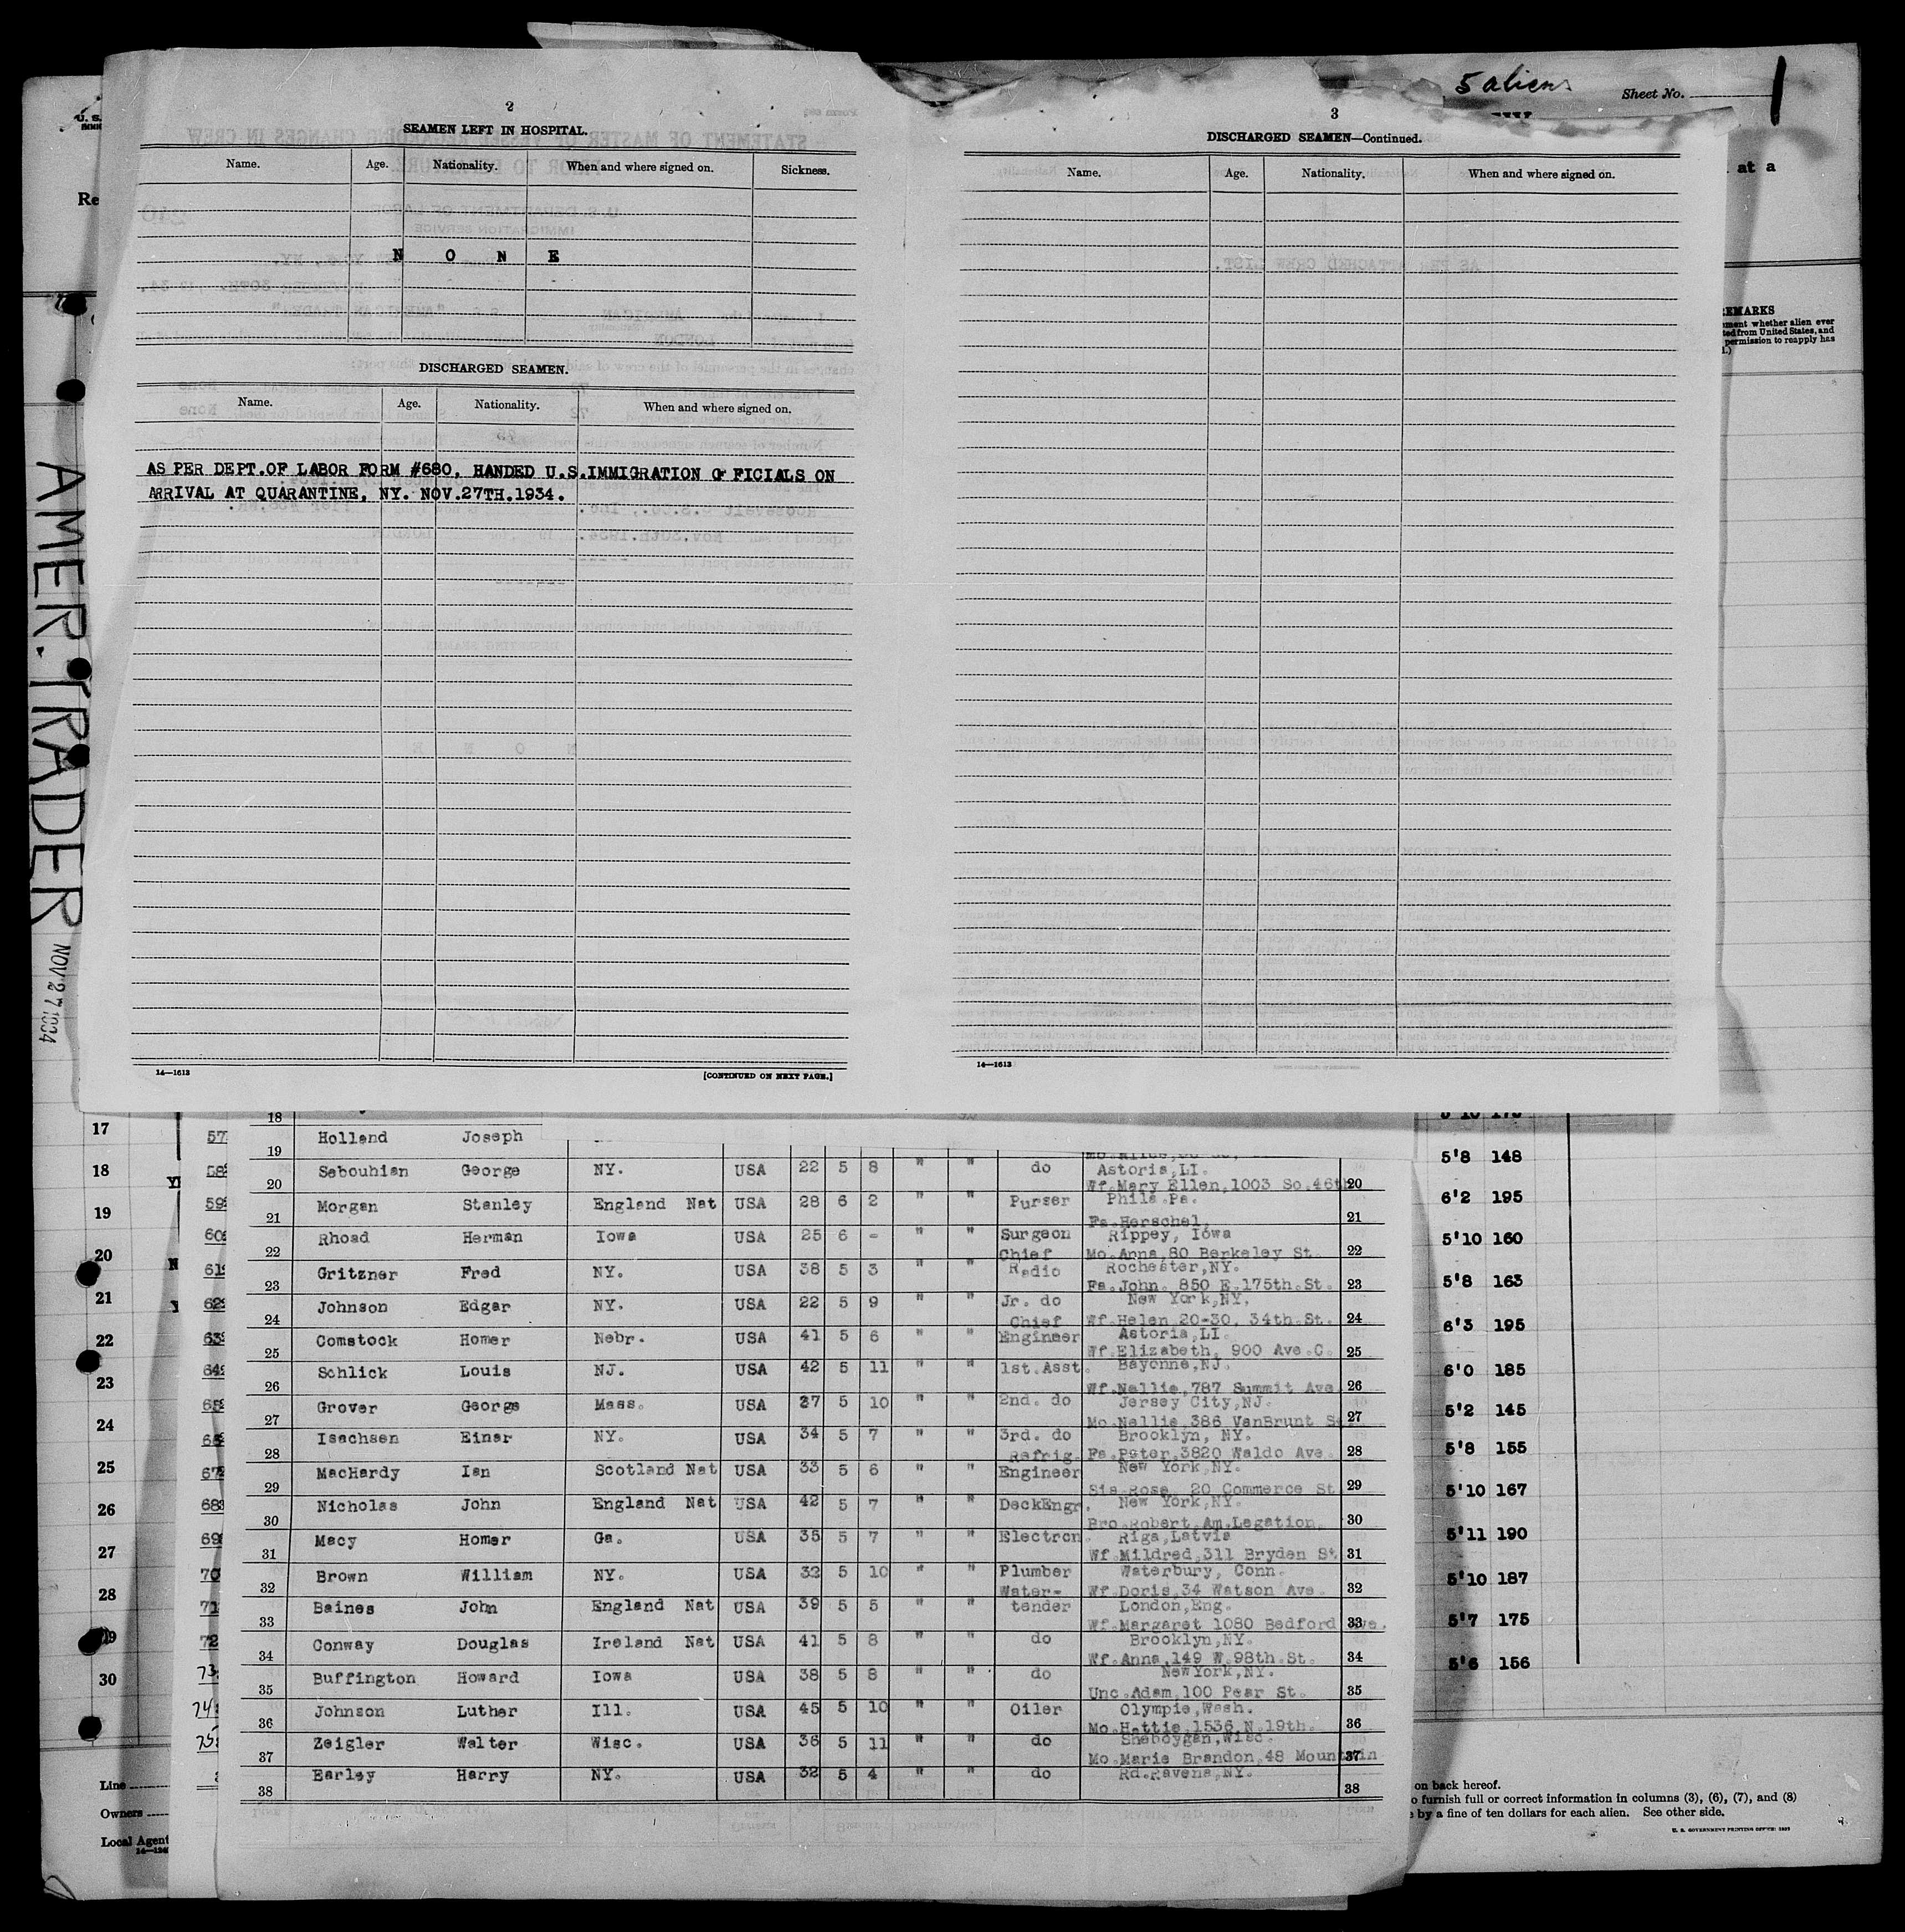 5 aliens
Sheet No. 1
2
SEAMEN LEFT IN HOSPITAL.
Name. Age. Nationality. When and where signed on. Sickness.
N O N E
DISCHARGED SEAMEN.
Name. Age. Nationality. When and where signed on.
AS PER DEPT.OF LABOR FORM #680, HANDED U.S.IMMIGRATION OFFICIALS ON
ARRIVAL AT QUARANTINE, NY. NOV.27TH.1934.
14—1613
[CONTINUED ON NEXT PAGE.]
3
DISCHARGED SEAMEN—Continued.
Name. Age. Nationality. When and where signed on.
14—1613
U. S.
Re
at a
EMARKS
ment whether alien ever
ted from United States, and
permission to reapply has
AMER. TRADER
NOV 27 1934
18
19 Holland Joseph
20 Sebouhian George NY. USA 22 5 8 " " do Astoria,LI. 20
Wf.Mary Ellen,1003 So.46th
21 Morgan Stanley England Nat USA 28 6 2 " " Purser Phila.Pa. 21
Fa.Herschel,
22 Rhoad Herman Iowa USA 25 6 - " " Surgeon Rippey, Iowa 22
Chief Mo.Anna,80 Berkeley St.
23 Gritzner Fred NY. USA 38 5 3 " " Radio Rochester,NY. 23
Fa.John. 850 E.175th.St.
24 Johnson Edgar NY. USA 22 5 9 " " Jr. do New York,NY. 24
Chief Wf.Helen 20-30, 34th.St.
25 Comstock Homer Nebr. USA 41 5 6 " " Engineer Astoria,LI. 25
Wf.Elizabeth, 900 Ave.C.
26 Schlick Louis NJ. USA 42 5 11 " " 1st.Asst. Bayonne,NJ. 26
Wf.Nellie,787 Summit Ave
27 Grover George Mass. USA 37 5 10 " " 2nd. do Jersey City,NJ. 27
Mo.Nellie,386 VanBrunt St.
28 Isachsen Einar NY. USA 34 5 7 " " 3rd. do Brooklyn, NY. 28
Refrig. Fa.Peter,3820 Waldo Ave.
29 MacHardy Ian Scotland Nat USA 33 5 6 " " Engineer New York,NY. 29
Sis.Rose, 20 Commerce St
30 Nicholas John England Nat USA 42 5 7 " " DeckEngr. New York,NY. 30
Bro.Robert,Am.Legation,
31 Macy Homer Ga. USA 35 5 7 " " Electrcn. Riga,Latvia 31
Wf.Mildred,311 Bryden St
32 Brown William NY. USA 32 5 10 " " Plumber Waterbury, Conn. 32
Water- Wf.Doris,34 Watson Ave.
33 Baines John England Nat USA 39 5 5 " " tender London,Eng. 33
Wf.Margaret 1080 Bedford Ave.
34 Conway Douglas Ireland Nat USA 41 5 8 " " do Brooklyn,NY. 34
Wf.Anna,149 W.98th.St.
35 Buffington Howard Iowa USA 38 5 8 " " do NewYork,NY. 35
Unc.Adam,100 Pear St.
36 Johnson Luther Ill. USA 45 5 10 " " Oiler Olympia,Wash. 36
Mo.Hattie,1536 N.19th.
37 Zeigler Walter Wisc. USA 36 5 11 " " do Sheboygan,Wisc. 37
Mo.Marie Brandon,48 Mountain
38 Earley Harry NY. USA 32 5 4 " " do Rd.Ravena,NY. 38
17
18
19
20
21
22
23
24
25
26
27
28
29
30
57
58
59
60
61
62
63
64
65
66
67
68
69
70
71
72
73
74
75
5'8 148
6'2 195
5'10 160
5'8 163
6'3 195
6'0 185
5'2 145
5'8 155
5'10 167
5'11 190
5'10 187
5'7 175
5'6 156
Line
Owners
Local Agent
on back hereof.
o furnish full or correct information in columns (3), (6), (7), and (8)
by a fine of ten dollars for each alien. See other side.
U. S. GOVERNMENT PRINTING OFFICE: